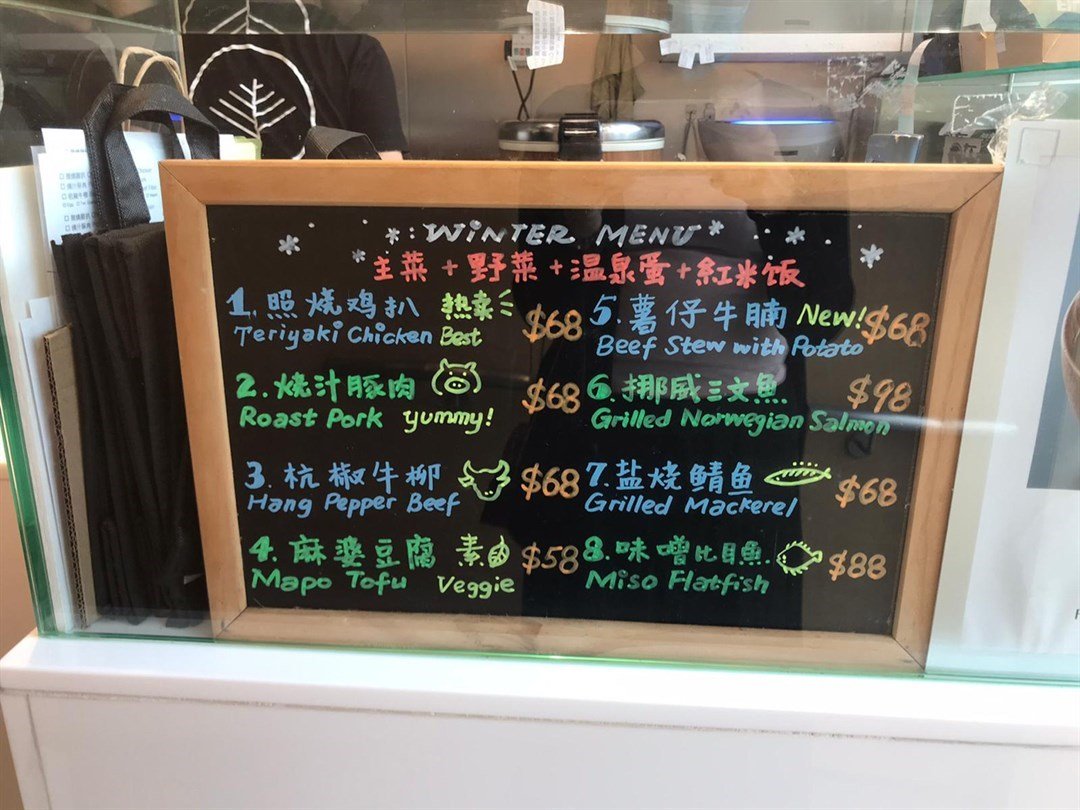 WINTER MENU
主菜+野菜+温泉蛋+紅米饭
1.照烧鸡扒 热卖
Teriyaki Chicken Best $68
2.烧汁豚肉
Roast Pork yummy! $68
3.杭椒牛柳
Hang Pepper Beef $68
4.麻婆豆腐 素卤
Mapo Tofu Veggie $58
5.薯仔牛腩 New! $68
Beef Stew with Potato
6.挪威三文魚 $98
Grilled Norwegian Salmon
7.盐烧鯖鱼
Grilled Mackerel $68
8.味噌比目魚
Miso Flatfish $88